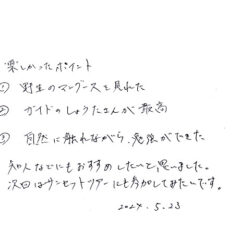 楽しかったポイント
① 野生のマングースを見れた
② ガイドのしょうたさんが最高
③ 自然に触れながら、勉強ができた
知人などにもおすすめしたいと思いました。
次回はサンセットツアーにも参加してみたいです。
2024.5.23